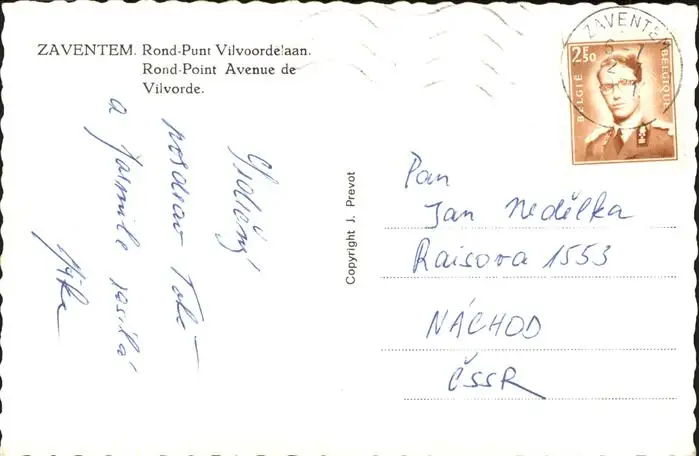 ZAVENTEM. Rond-Punt Vilvoordelaan.
Rond-Point Avenue de
Vilvorde.
Srdečný
pozdrav Tobě –
a Jarmile posílá
Jiřka
Copyright J. Prevot
ZAVENTEM
2F50
BELGIË
BELGIQUE
Pan
Jan Nedělka
Raisova 1553
NÁCHOD
ČSSR